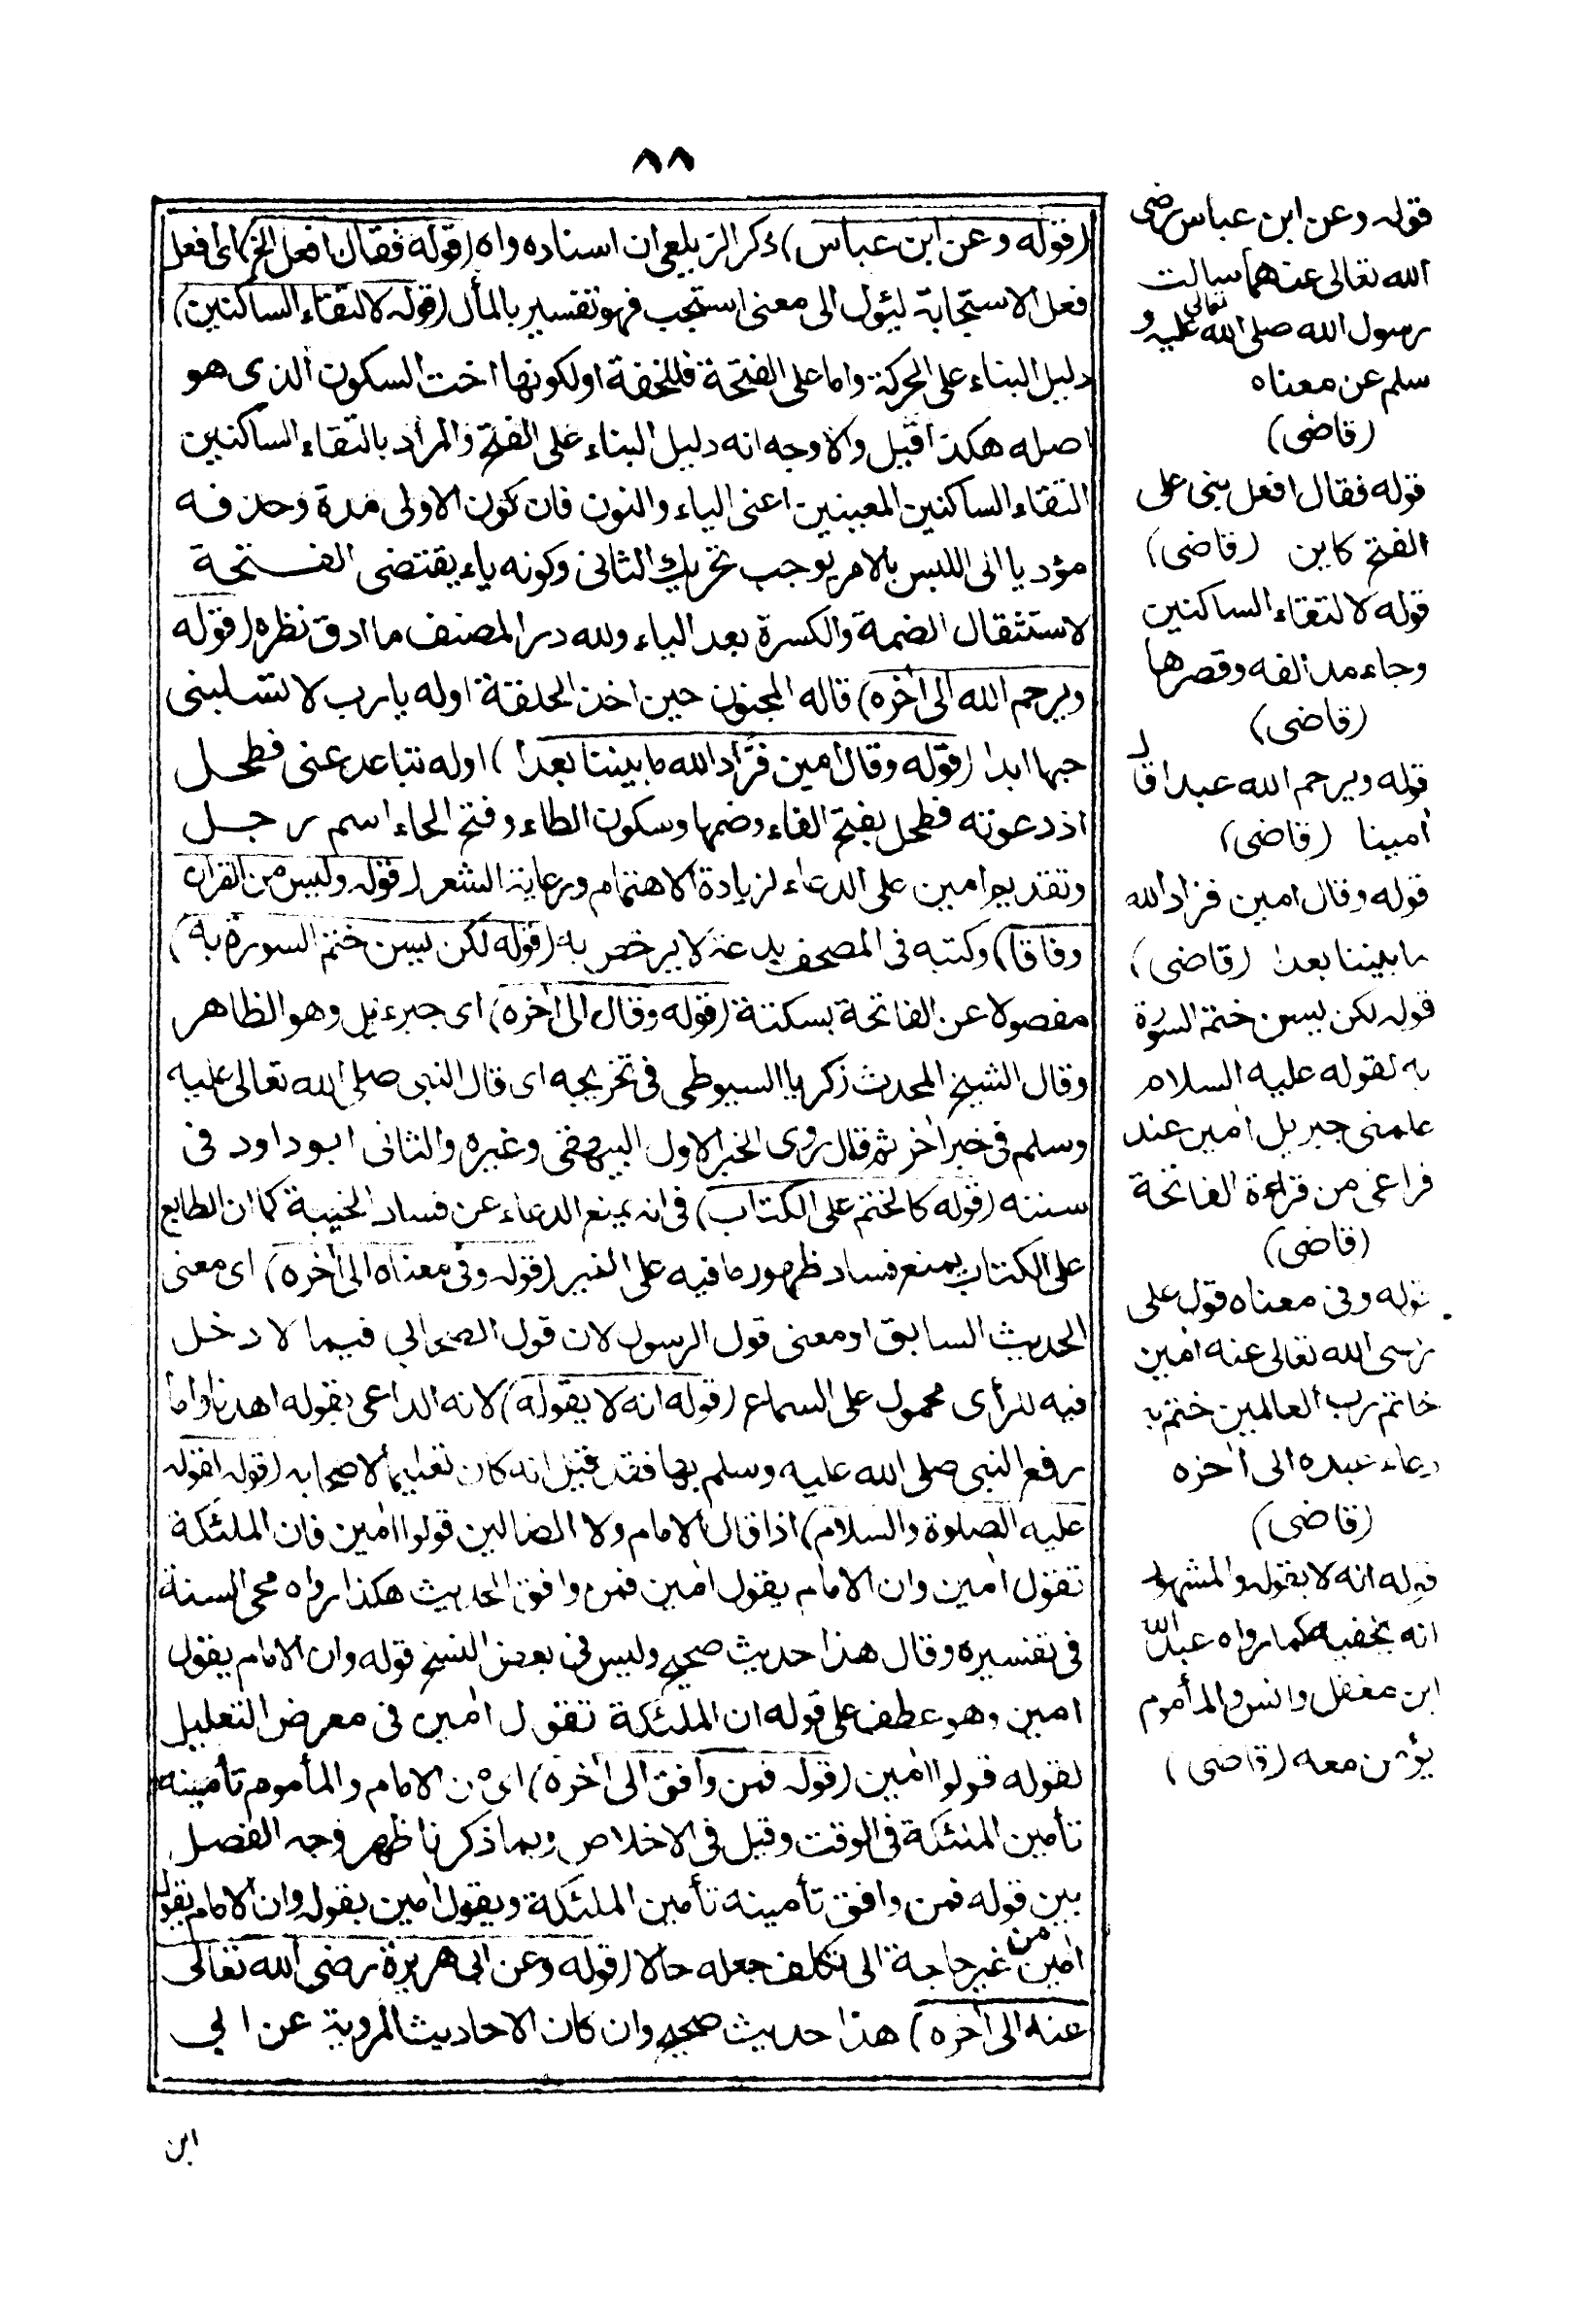 ٨٨
(قوله وعن ابن عباس) ذكر الزيلعى ان اسناده واه (قوله فقال افعل الخ) اى افعل
فعل الاستجابة ليئول الى معنى استجب فهو تفسير بالمأل (قوله لالتقاء الساكنين)
دليل البناء على الحركة واما على الفتحة فللخفة اولكونها اخت السكون الذى هو
اصله هكذا قيل والاوجه انه دليل البناء على الفتح والمراد بالتقاء الساكنين
التقاء الساكنين المعينين اعنى الياء والنون فان كون الاولى مدة وحذفه
مؤديا الى اللبس بالامر يوجب تحريك الثانى وكونه ياء يقتضى الفتحة
لاستثقال الضمة والكسرة بعد الياء ولله در المصنف ما ادق نظره (قوله
ويرحم الله الى أخره) قاله المجنون حين اخذ الحلقة اوله يارب لا تسلبنى
حبها ابدا (قوله وقال امين فزاد الله ما بيننا بعدا) اوله تباعد عنى فطحل
اذ دعوته فطحل بفتح الفاء وضمها وسكون الطاء وفتح الحاء اسم رجل
وتقديم امين على الدعاء لزيادة الاهتمام ورعاية الشعر (قوله وليس من القران
وفاقا) وكتبه فى المصحف بدعة لا يرخص به (قوله لكن يسن ختم السورة به)
مفصولا عن الفاتحة بسكتة (قوله وقال الى أخره) اى جبرءيل وهو الظاهر
وقال الشيخ المحدث زكريا السيوطى فى تخريجه اى قال النبى صلى الله تعالى عليه
وسلم فى خبر اخر ثم قال روى الخبر الاول البيهقى وغيره والثانى ابو داود فى
سننه (قوله كالختم على الكتاب) فى انه يمنع الدعاء عن فساد الخيبة كما ان الطابع
على الكتاب يمنع فساد ظهور ما فيه على الغير (قوله وفى معناه الى أخره) اى معنى
الحديث السابق او معنى قول الرسول لان قول الصحابي فيما لا دخل
فيه للرأى محمول على السماع (قوله انه لا يقوله) لانه الداعى بقوله اهدنا واما
رفع النبى صلى الله عليه وسلم بها فقد قيل انه كان تعليما لاصحابه (قوله لقوله
عليه الصلوة والسلام) اذا قال الامام ولا الضالين قولوا امين فان الملئكة
تقول امين وان الامام يقول امين فمن وافق الحديث هكذا رواه محى السنة
فى تفسيره وقال هذا حديث صحيح وليس فى بعض النسخ قوله وان الامام يقول
امين وهو عطف على قوله ان الملئكة تقول امين فى معرض التعليل
لقوله قولوا امين (قوله فمن وافق الى أخره) اى من الامام والمأموم تأمينه
تأمين الملئكة فى الوقت وقيل فى الاخلاص وبما ذكرنا ظهر وجه الفصل
بين قوله فمن وافق تأمينه تأمين الملئكة ويقول امين بقوله وان الامام يقول
امين من غير حاجة الى تكلف جعله حالا (قوله وعن ابى هريرة رضى الله تعالى
عنه الى أخره) هذا حديث صحيح وان كان الاحاديث المروية عن ابي
ابن
قوله وعن ابن عباس رضى
الله تعالى عنهما سالت
رسول الله صلى الله تعالى عليه و
سلم عن معناه
(قاضى)
قوله فقال افعل بنى على
الفتح كاين (قاضى)
قوله لالتقاء الساكنين
وجاء مد الفه وقصرها
(قاضى)
قوله ويرحم الله عبدا قال
أمينا (قاضى)
قوله وقال امين فزاد الله
ما بيننا بعدا (قاضى)
قوله لكن يسن ختم السورة
به لقوله عليه السلام
علمنى جبريل امين عند
فراغى من قراءة الفاتحة
(قاضى)
قوله وفى معناه قول على
رضى الله تعالى عنه امين
خاتم رب العالمين ختم به
دعاء عبده الى أخره
(قاضى)
قوله انه لا يقوله والمشهور
انه يخفيه كما رواه عبد الله
ابن مغفل وانس والمأموم
يؤمن معه (قاضى)